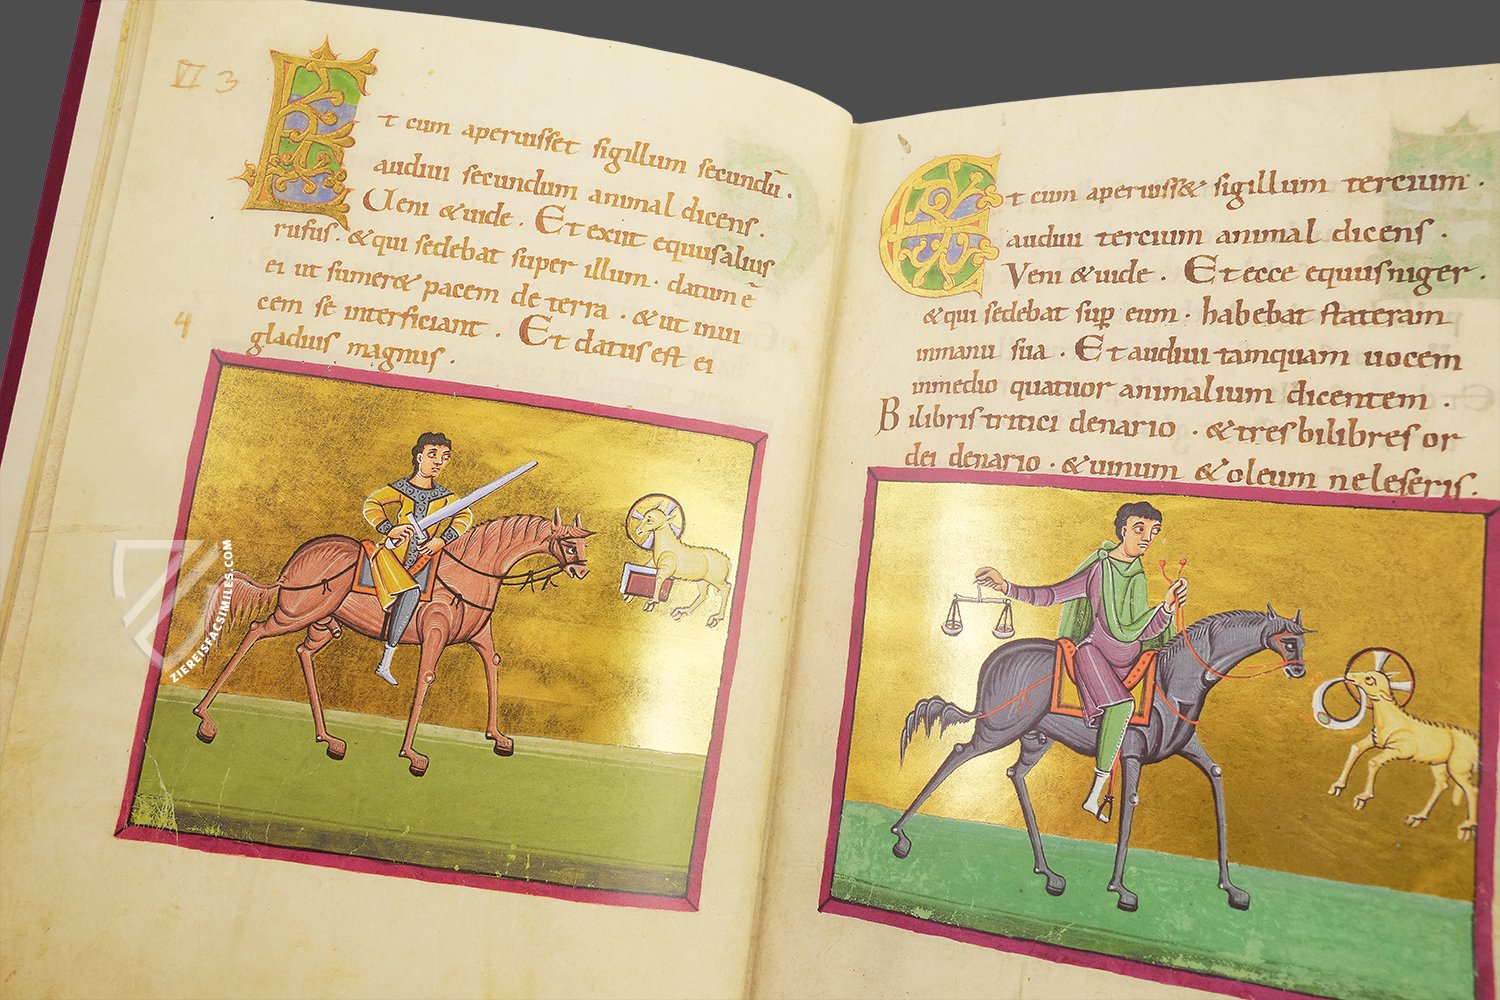 VI 3
Et cum aperuisset sigillum secundū.
audiui secundum animal dicens.
Ueni & uide. Et exiit equus alius
rufus. & qui sedebat super illum. datum ē
ei ut sumer& pacem de terra. & ut inui
cem se interficiant. Et datus est ei
4
gladius magnus.
Et cum aperuiss& sigillum tercium.
audiui tercium animal dicens.
Veni & uide. Et ecce equus niger.
& qui sedebat sup̱ eum. habebat stateram
inmanu sua. Et audiui tamquam uocem
inmedio quatuor animalium dicentem.
Bilibris tritici denario. & tres bilibres or
dei denario. & uinum & oleum ne leseris.
ZIEREISFACSIMILES.COM